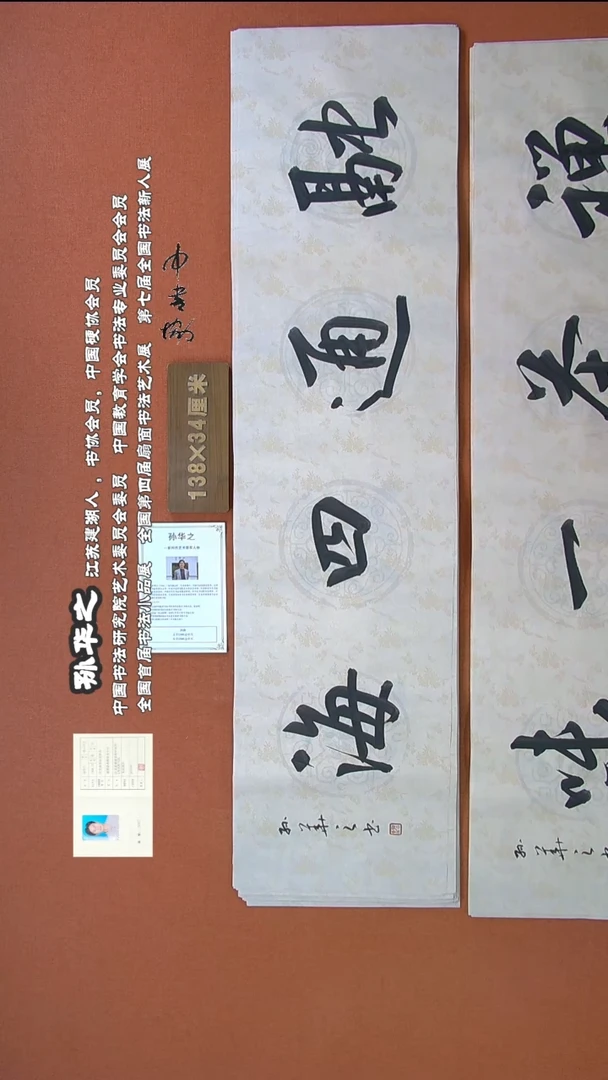 孙华之 江苏建湖人，书协会员，中国硬协会员
中国书法研究院艺术委员会委员 中国教育学会书法专业委员会会员
全国首届书法小品展 全国第四届扇面书法艺术展 第七届全国书法新人展
孙华之
138×34厘米
通四海
孙华之书
禅茶一味
孙华之书